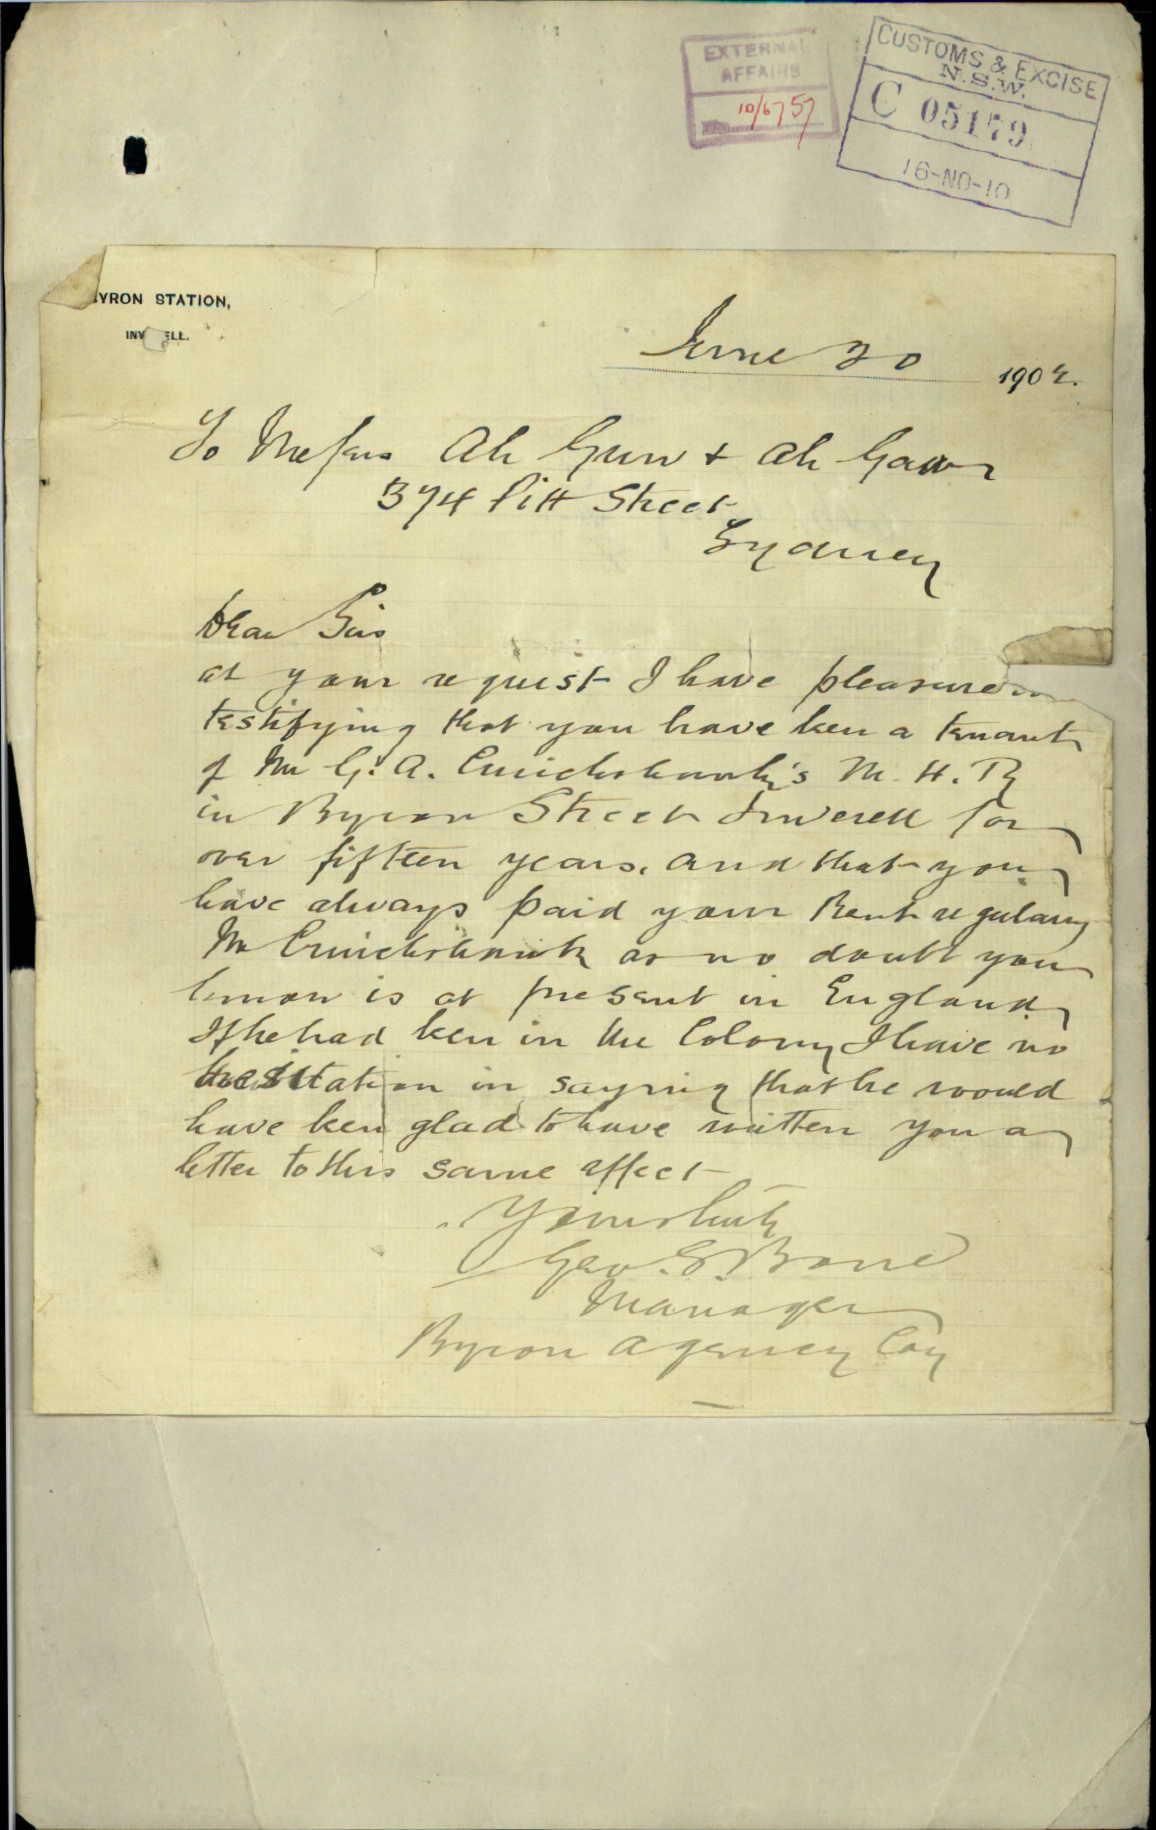 EXTERNAL
AFFAIRS
10/6757
CUSTOMS & EXCISE
N.S.W.
C 05179
16-NO-10
YRON STATION,
INV ELL.
June 20 1902.
To Messrs Ah Gun & Ah Gan
374 Pitt Street
Sydney
Dear Sirs
at your request I have pleasure in
testifying that you have been a tenant
of Mr G. A. Cruickshank's M. H. R
in Byron Street Inverell for
over fifteen years, and that you
have always paid your Rent regularly
Mr Cruickshank as no doubt you
know is at present in England
If he had been in the Colony I have no
hesitation in saying that he would
have been glad to have written you a
letter to this same effect
Yours truly
Geo. S. Bone
Manager
Byron Agency Coy